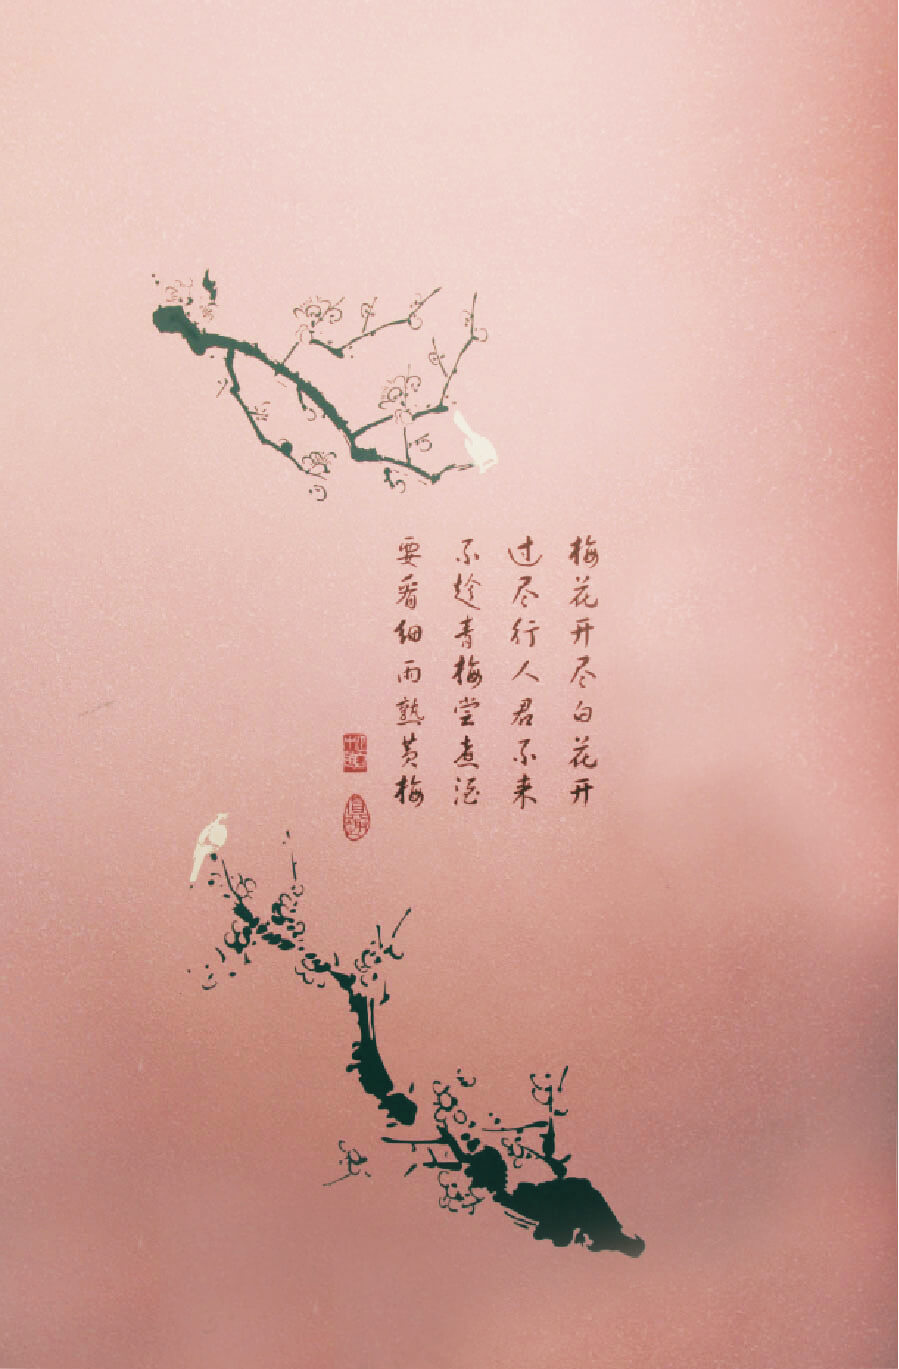 梅花开尽白花开
过尽行人君不来
不趁青梅尝煮酒
要看细雨熟黄梅